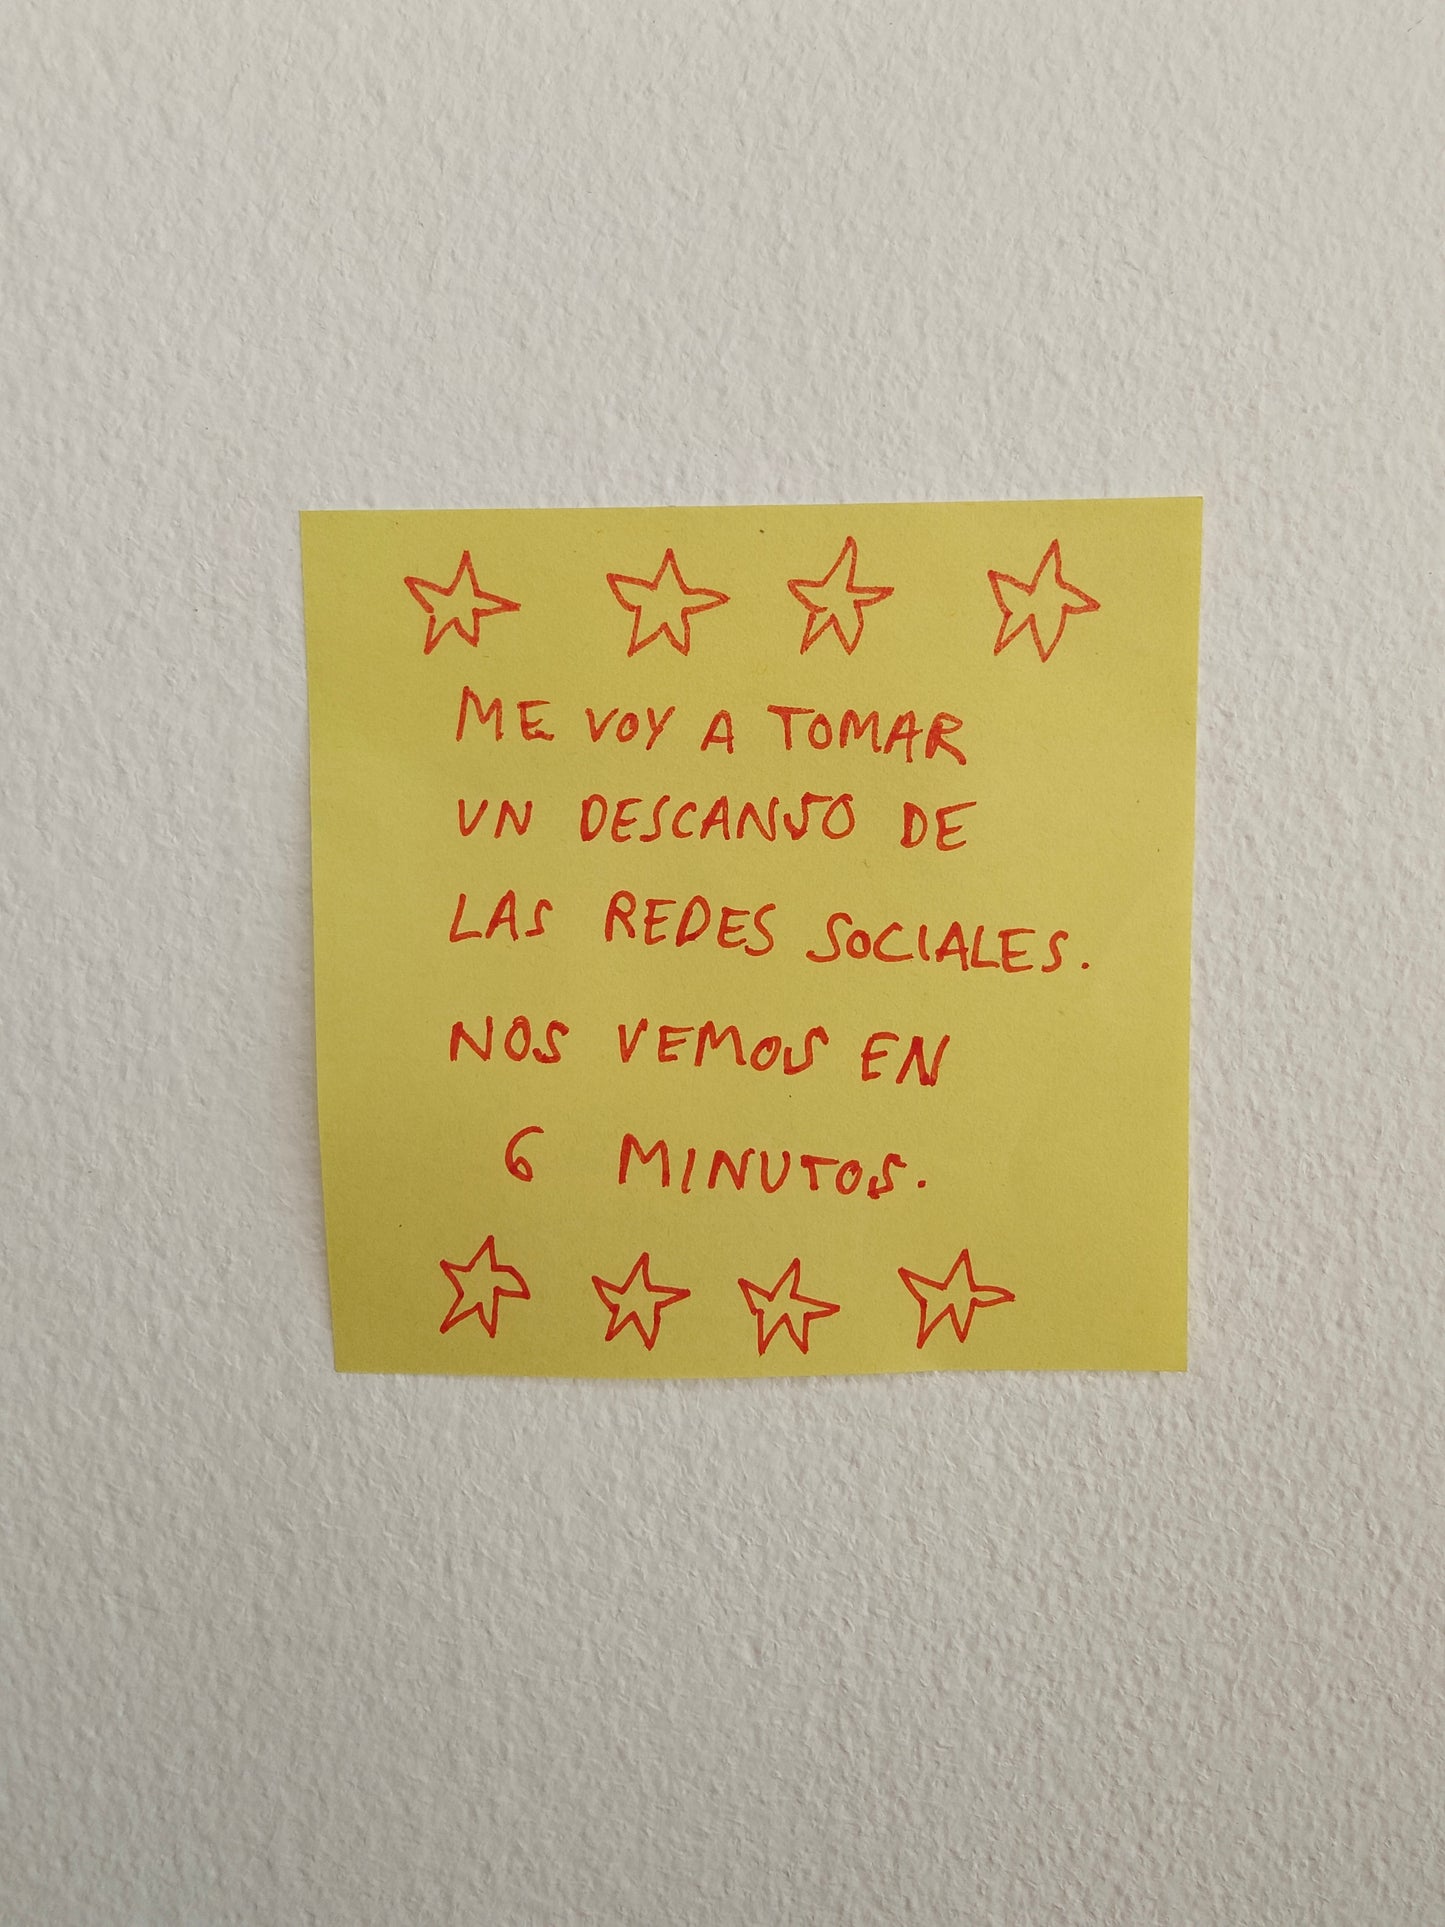 ME VOY A TOMAR
UN DESCANSO DE
LAS REDES SOCIALES.
NOS VEMOS EN
6 MINUTOS.